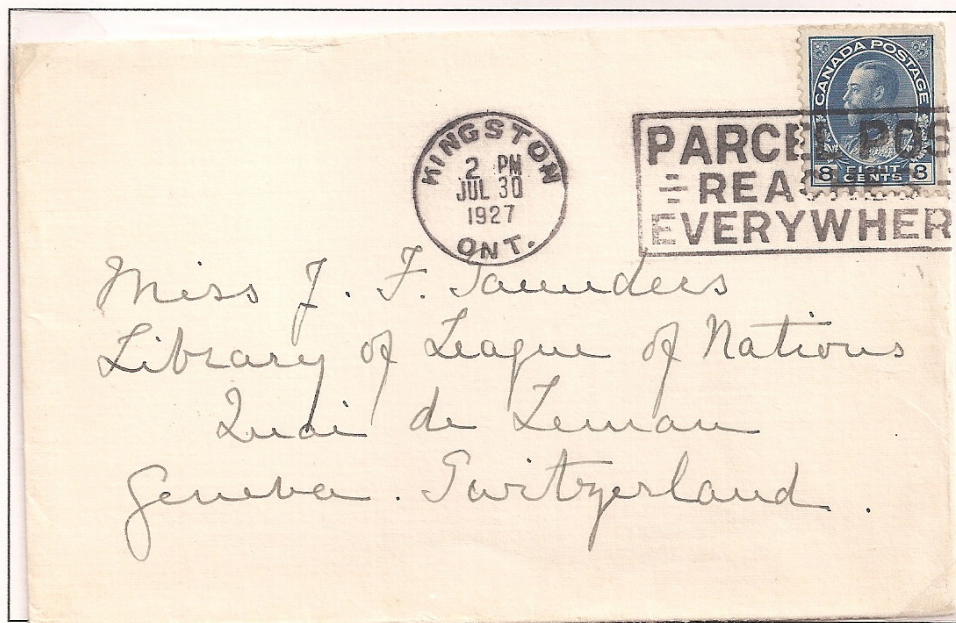 CANADA POSTAGE
8 EIGHT CENTS 8
KINGSTON
2 PM
JUL 30
1927
ONT.
PARCEL POS
REACHES
EVERYWHER
Miss J. F. Saunders
Library of League of Nations
Quai de Leman
Geneva. Switzerland.